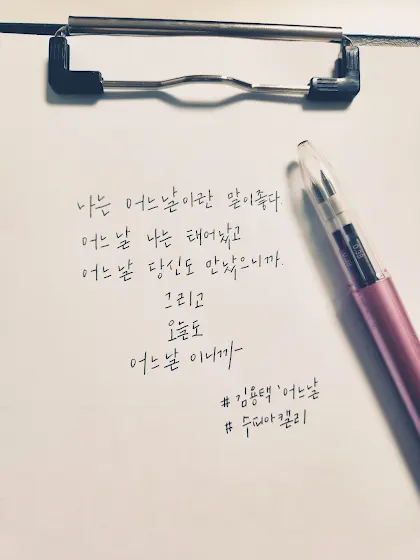 나는 어느날이란 말이좋다.
어느날 나는 태어났고
어느날 당신도 만났으니까.
그리고
오늘도
어느날 이니까~
# 김용택 '어느날
# 수피아캘리